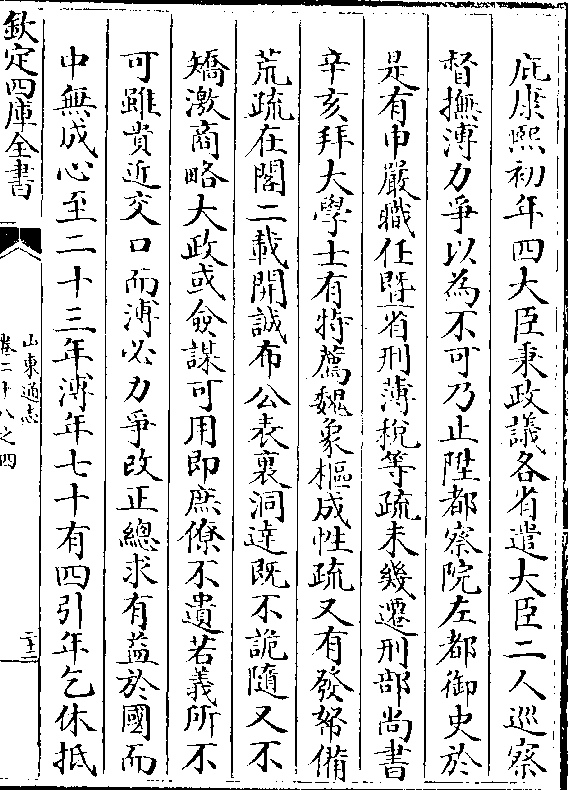 庇康熙初年四大臣秉政議各省遣大臣二人巡察
督撫溥力爭以為不可乃止陞都察院左都御史於
是有申嚴職任暨省刑薄稅等疏未幾遷刑部尚書
辛亥拜大學士有特薦魏象樞成性疏又有發帑備
荒疏在閣二載開誠布公表裏洞達既不詭隨又不
矯激商略大政或僉謀可用即庶僚不遺若義所不
可雖貴近交口而溥必力爭改正總求有益於國而
中無成心至二十三年溥年七十有四引年乞休抵
欽定四庫全書
山東通志
卷二十八之四
二十三